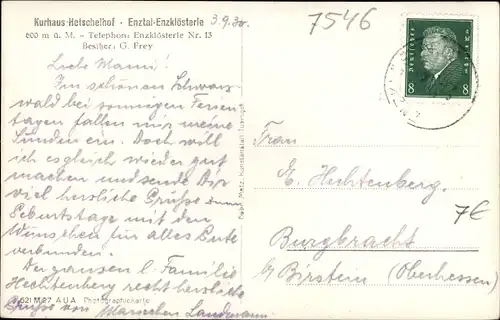 Kurhaus-Hetschelhof · Enztal-Enzklösterle
600 m ü. M. – Telephon: Enzklösterle Nr. 13
Besitzer: G. Frey
3.9.30.
7546
Liebe Mami!
Im schönen Schwarz
wald bei sonnigen Ferien
tagen fallen mir meine
Sünden ein. Doch will
ich es gleich wieder gut
machen und sende Dir
viel herzliche Grüße zum
Geburtstage mit den
Wünschen für alles Gute
verbunden.
Der ganzen l. Familie
Hechtenberg recht herzliche
Grüße von Mariechen Landmann.
Deutsches Reich
8 8
Frau
E. Hechtenberg
7€
Burgbracht
b/ Birstein (Oberhessen)
021 M 27 A U A Photographiekarte